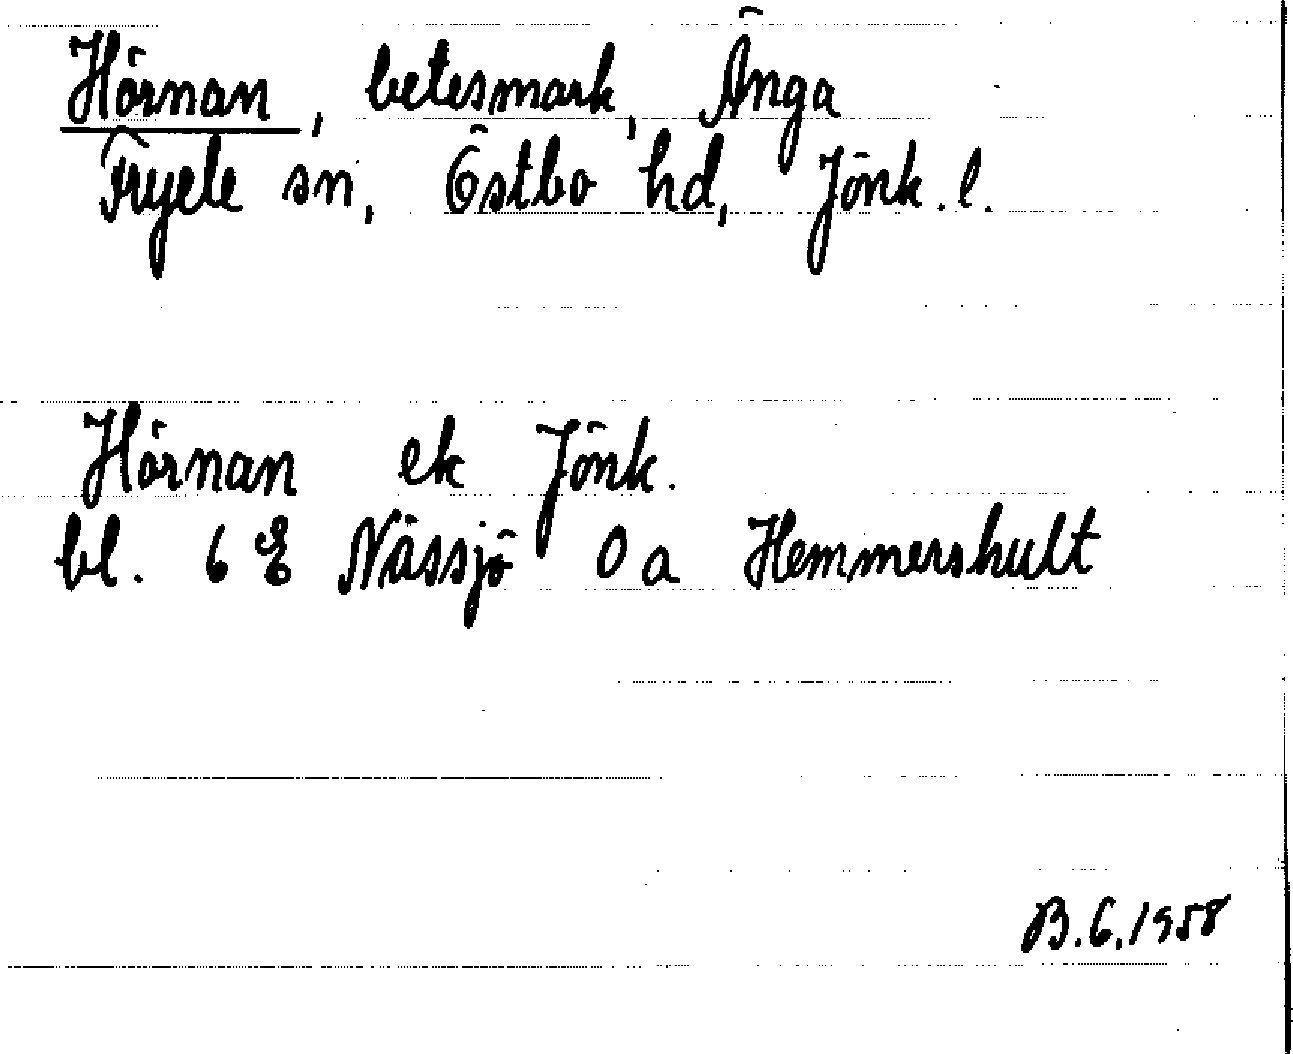 Hörnan, betesmark, Änga
Fryele sn, Östbo hd, Jönk. l.
Hörnan ek Jönk.
bl. 6 E Nässjö 0 a Hemmershult
B.G.1958